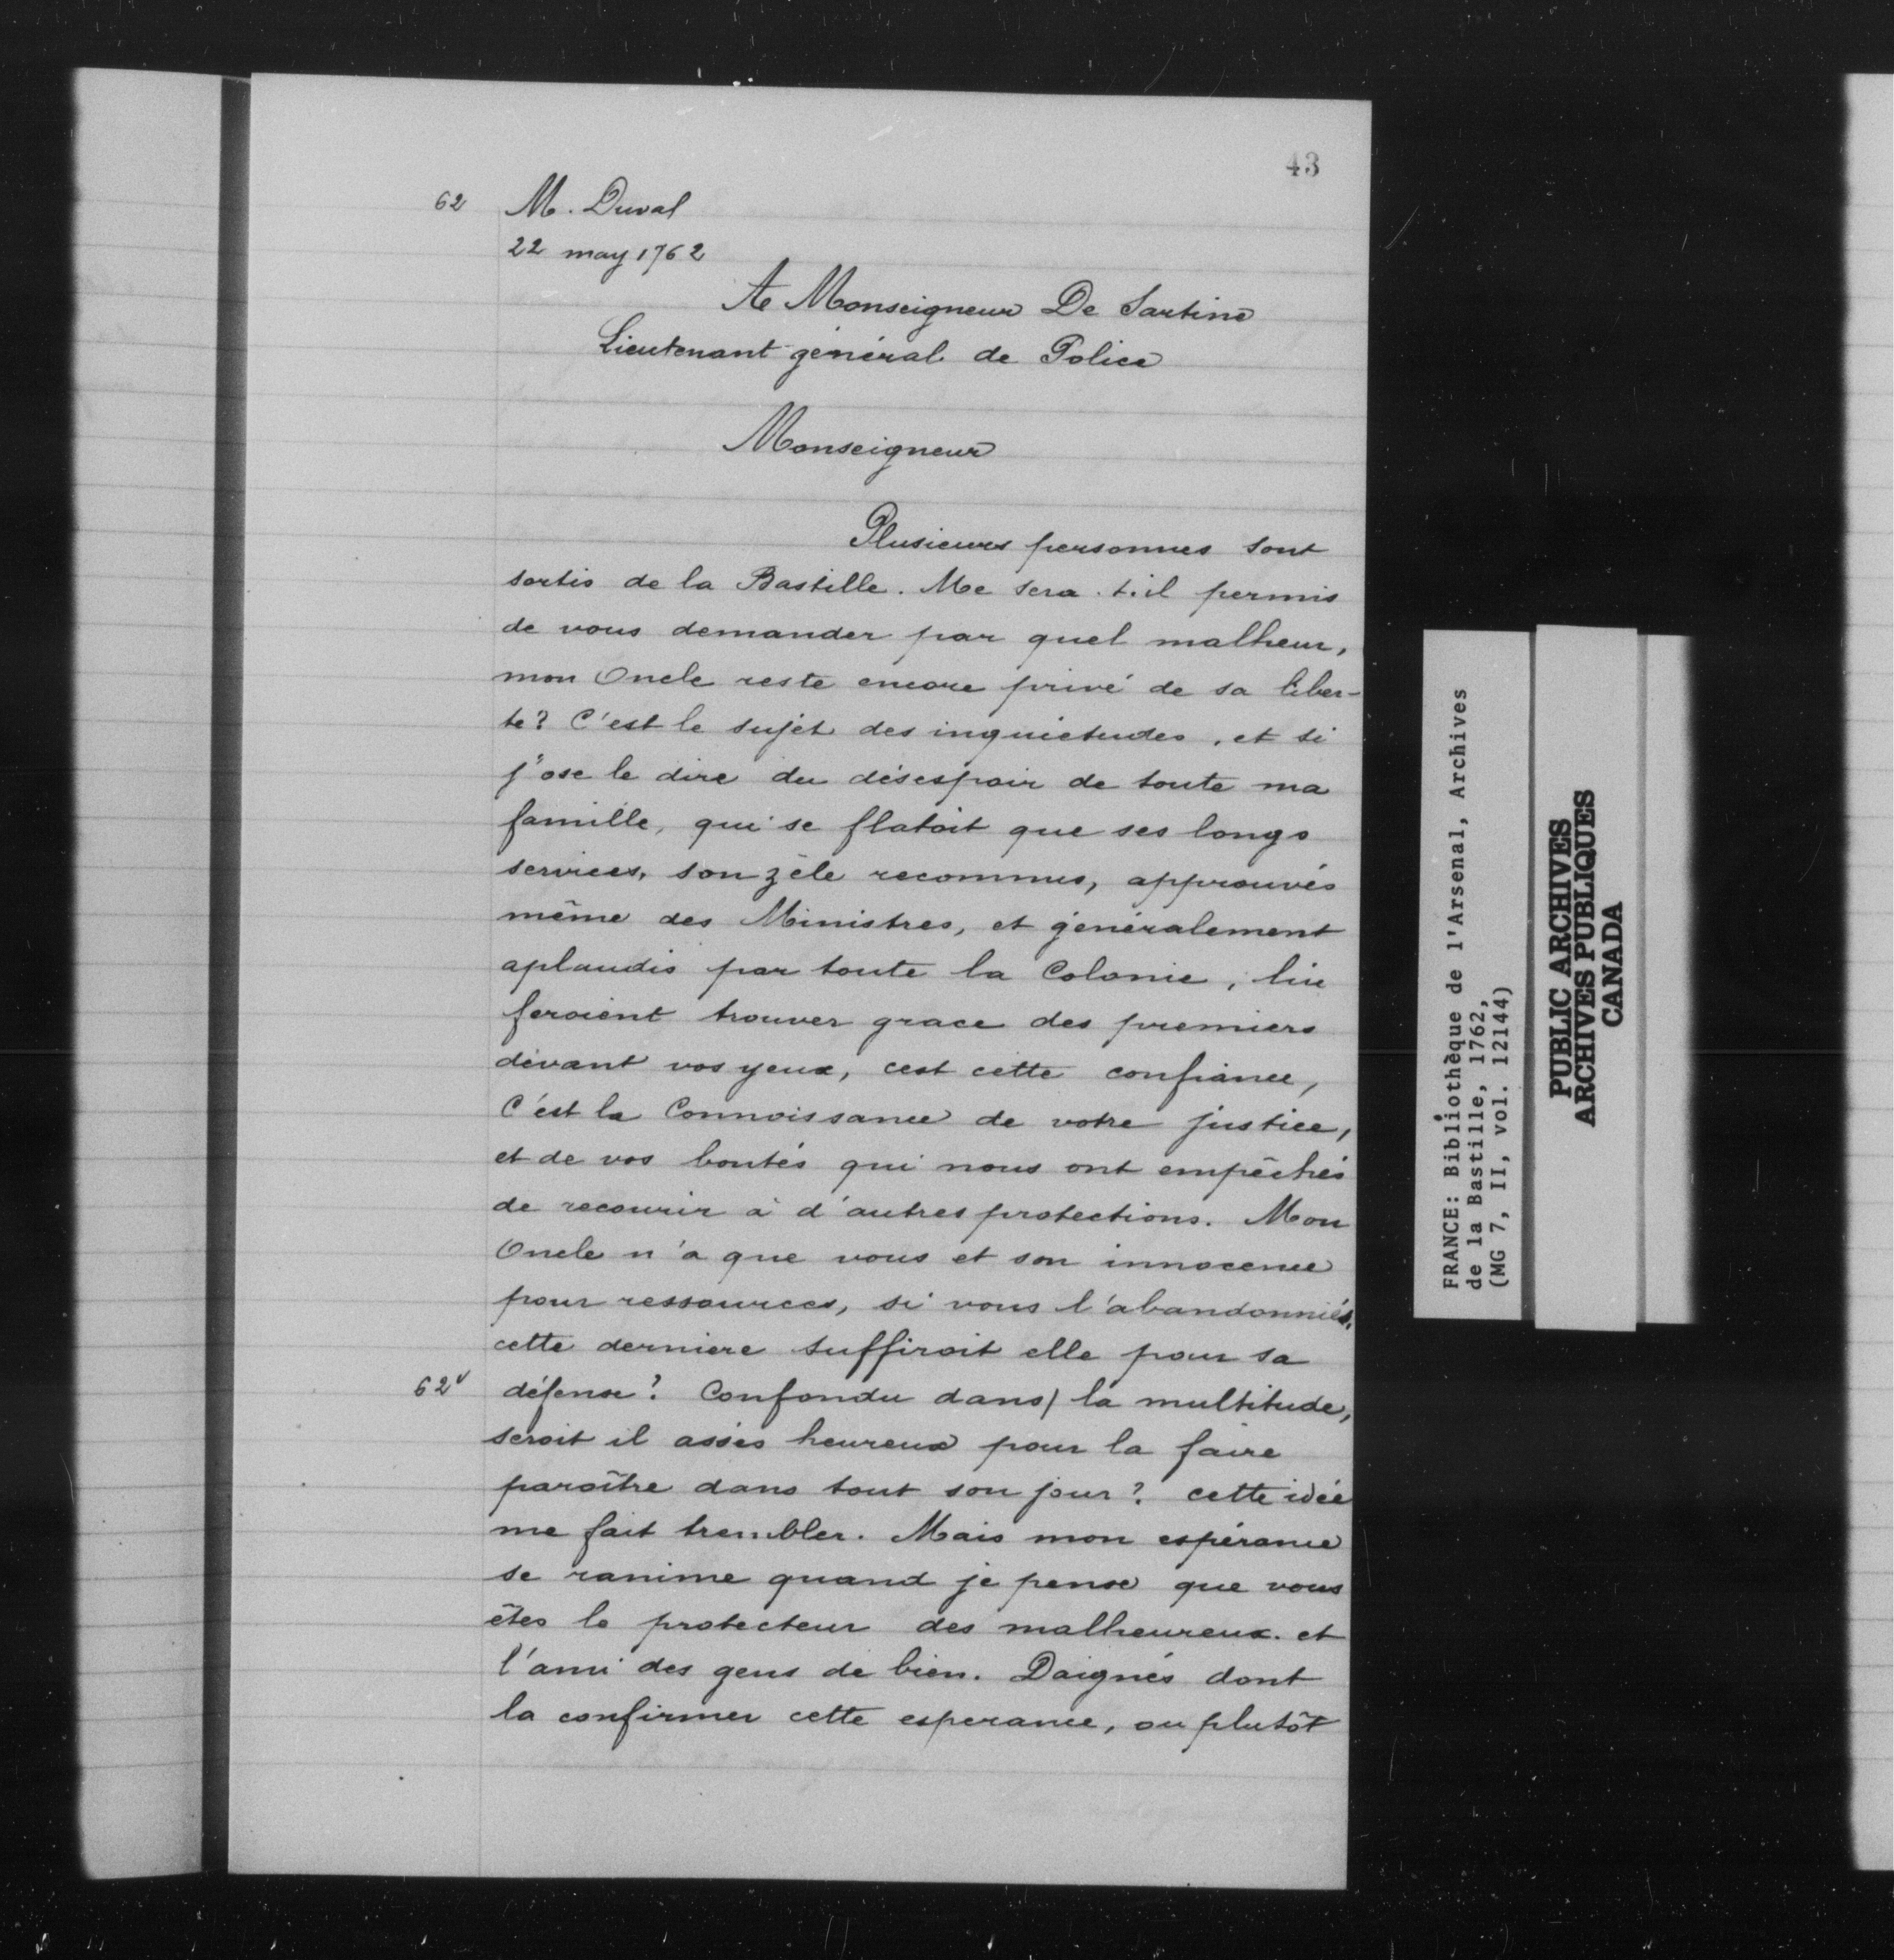 43
62 M. Duval
22 may 1762
A Monseigneur De Sartine
Lieutenant général de Police
Monseigneur
Plusieurs personnes sont
sortis de la Bastille. Me sera-t-il permis
de vous demander par quel malheur,
mon Oncle reste encore privé de sa liber-
te? C'est le sujet des inquiétudes, et si
j'ose le dire du désespoir de toute ma
famille, qui se flatoit que ses longs
services, son zèle reconnus, approuvés
même des Ministres, et généralement
aplaudis par toute la Colonie, lui
feroient trouver grace des premiers
dévant vos yeux, cest cette confiance,
C'est la Connoissance de votre justice,
et de vos bontés qui nous ont empêchés
de recourir à d'autres protections. Mon
Oncle n'a que vous et son innocence
pour ressources, si vous l'abandonniés,
cette derniere suffiroit elle pour sa
62v défense? Confondu dans/ la multitude,
seroit il assés heureux pour la faire
paroître dans tout son jour? cette idée
me fait trembler. Mais mon espérance
se ranime quand je pense que vous
êtes le protecteur des malheureux et
l'ami des gens de bien. Daignés dont
la confirmer cette esperance, ou plutôt
FRANCE: Bibliothèque de l'Arsenal, Archives
de la Bastille, 1762,
(MG 7, II, vol. 12144)
PUBLIC ARCHIVES
ARCHIVES PUBLIQUES
CANADA